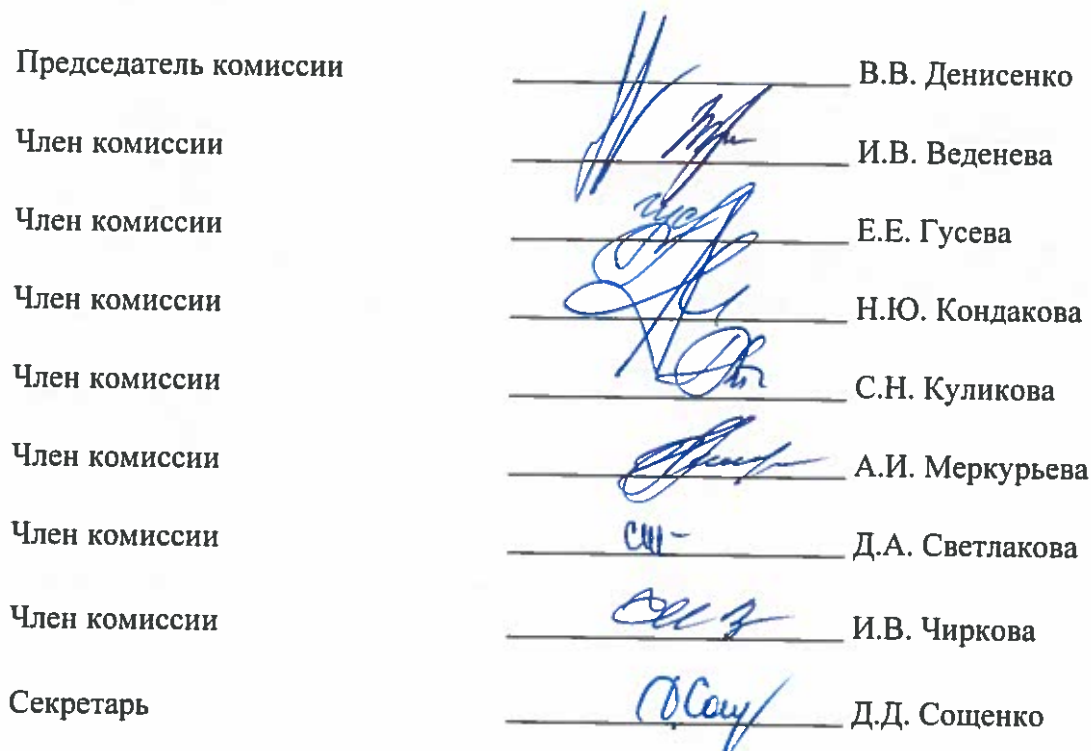 Председатель комиссии В.В. Денисенко
Член комиссии И.В. Веденева
Член комиссии Е.Е. Гусева
Член комиссии Н.Ю. Кондакова
Член комиссии С.Н. Куликова
Член комиссии А.И. Меркурьева
Член комиссии Д.А. Светлакова
Член комиссии И.В. Чиркова
Секретарь Д.Д. Сощенко